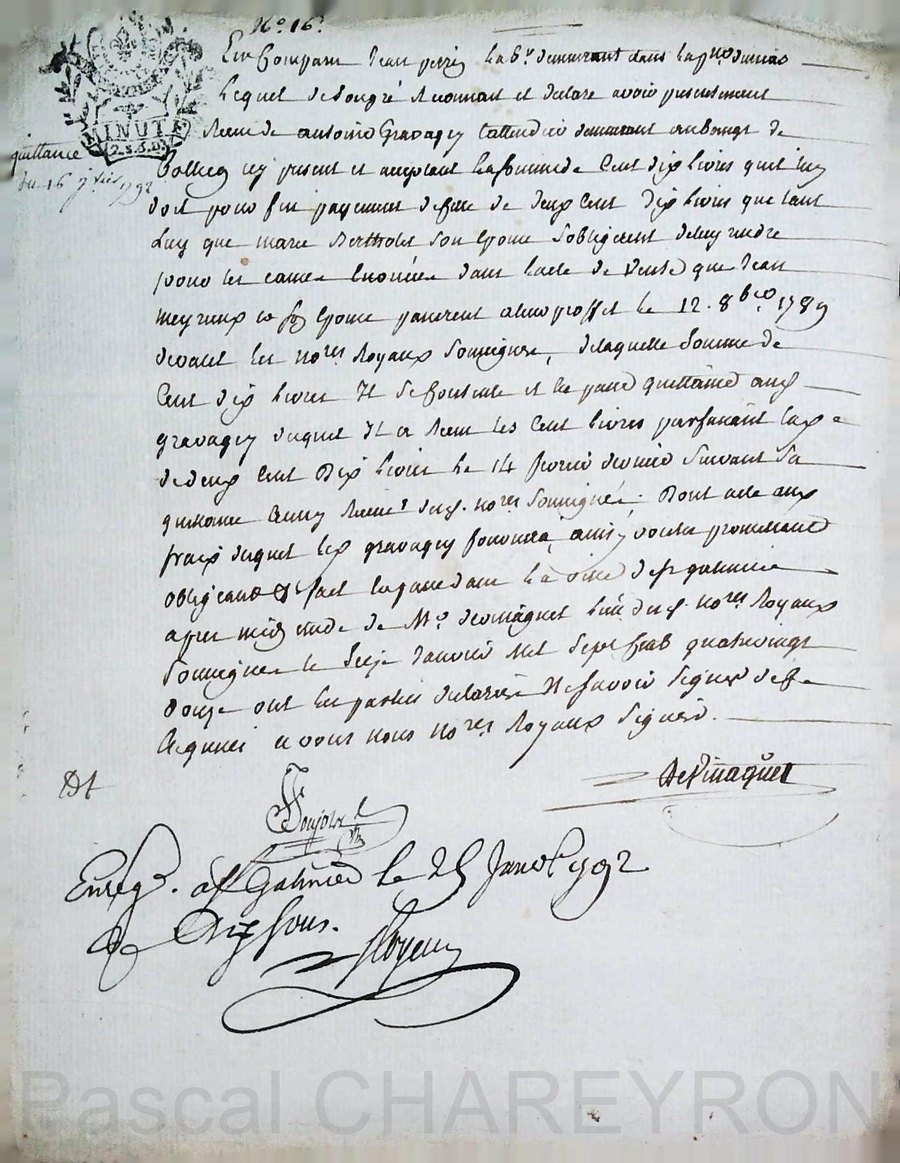 No. 16.
MINUTE
2. S. 3. D.
quittance
du 16 1792
Est Comparu Jean lab. demeurant dans la
Lequel de son gré Reconnait et declare avoir presentement
Reçu de antoine Gravagny demeurant au Bourg de
cy present et acceptant la somme de Cent dix livres quil luy
doit pour fin payement de celle de deux Cent dix livres que tant
Luy que marie Bertholet son Epouse Sobligerent de luy rendre
pour les causes Enoncées dans lacte de Vente que Jean
meyrieux et Epouse passerent a leur proffit le 12. 8bre 1789
devant les nores Royaux Soussignes, de laquelle Somme de
Cent dix livres Il Se Contente et en passe quittance aud.
gravagny duquel Il a Reçu les Cent livres parfaisant
de deux Cent Dix livres le 14 fevrier dernier Suivant Sa
quittance Reçue desd. nores Soussignés; Dont acte aux
frais duquel gravagny ainsy voulu promettant
obligeant & fait et passé dans la ville de st galmier
apres midy Etude de Me. devinaquet lun desd. nores Royaux
Soussignés le Seize Janvier Mil Sept Cent quatrevingt
douze ont les parties declarées Ne Savoir Signer de ce
Requises avons nous nores Royaux Signés.
DeVinaquet
Enreg. a st Galmier le 25 Janv. 1792
Dix sous.
Pascal CHAREYRON